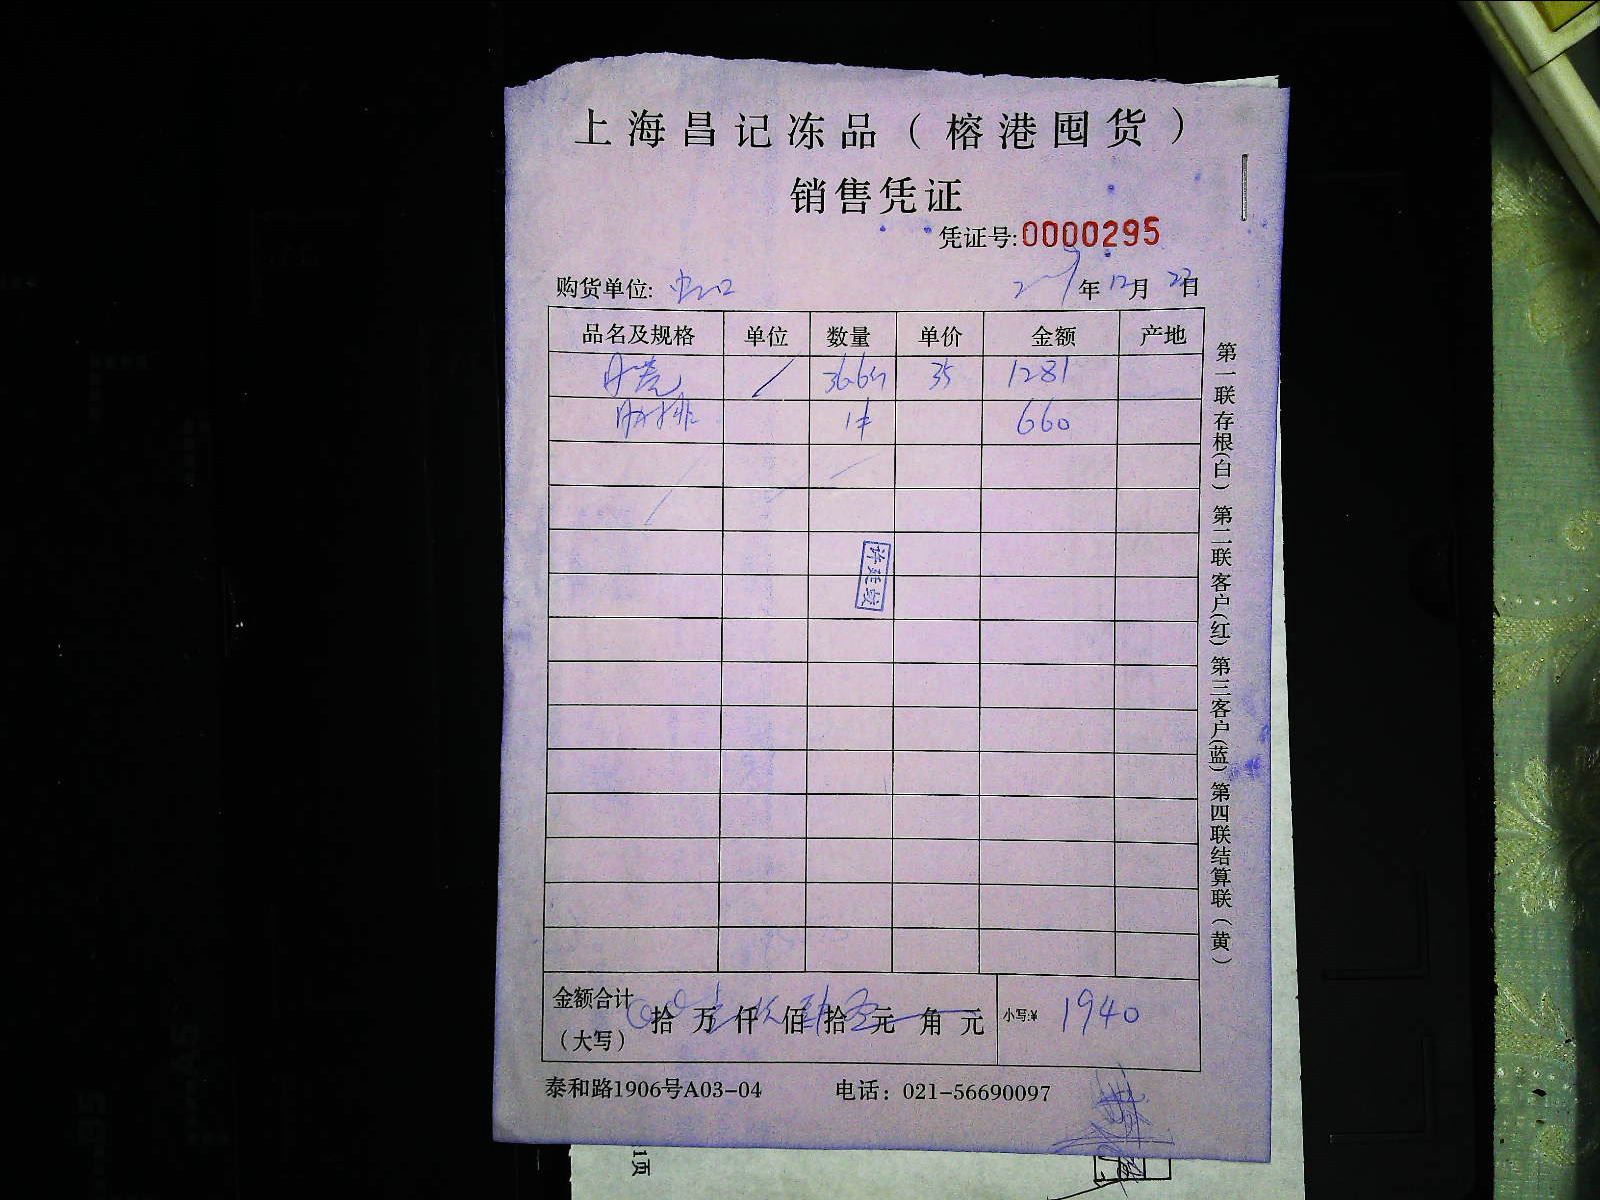 上海昌记冻品（榕港囤货）
销售凭证
凭证号:0000295
购货单位: 年12月22日
品名及规格 单位 数量 单价 金额 产地
36.6 35 1281
1件 660
金额合计（大写） 拾 万 仟 佰 拾 元 角 元 小写:¥ 1940
泰和路1906号A03-04 电话：021-56690097
第一联存根(白) 第二联客户(红) 第三客户(蓝) 第四联结算联(黄)
1页